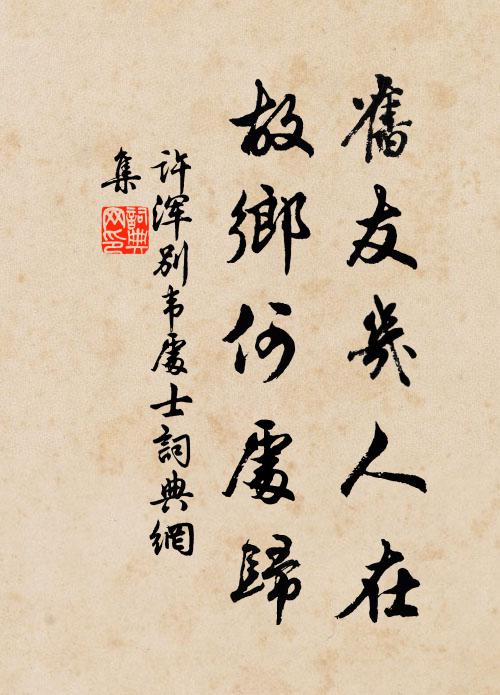 舊友幾人在
故鄉何處歸
许渾别韦處士詞典網
集
詞典网印